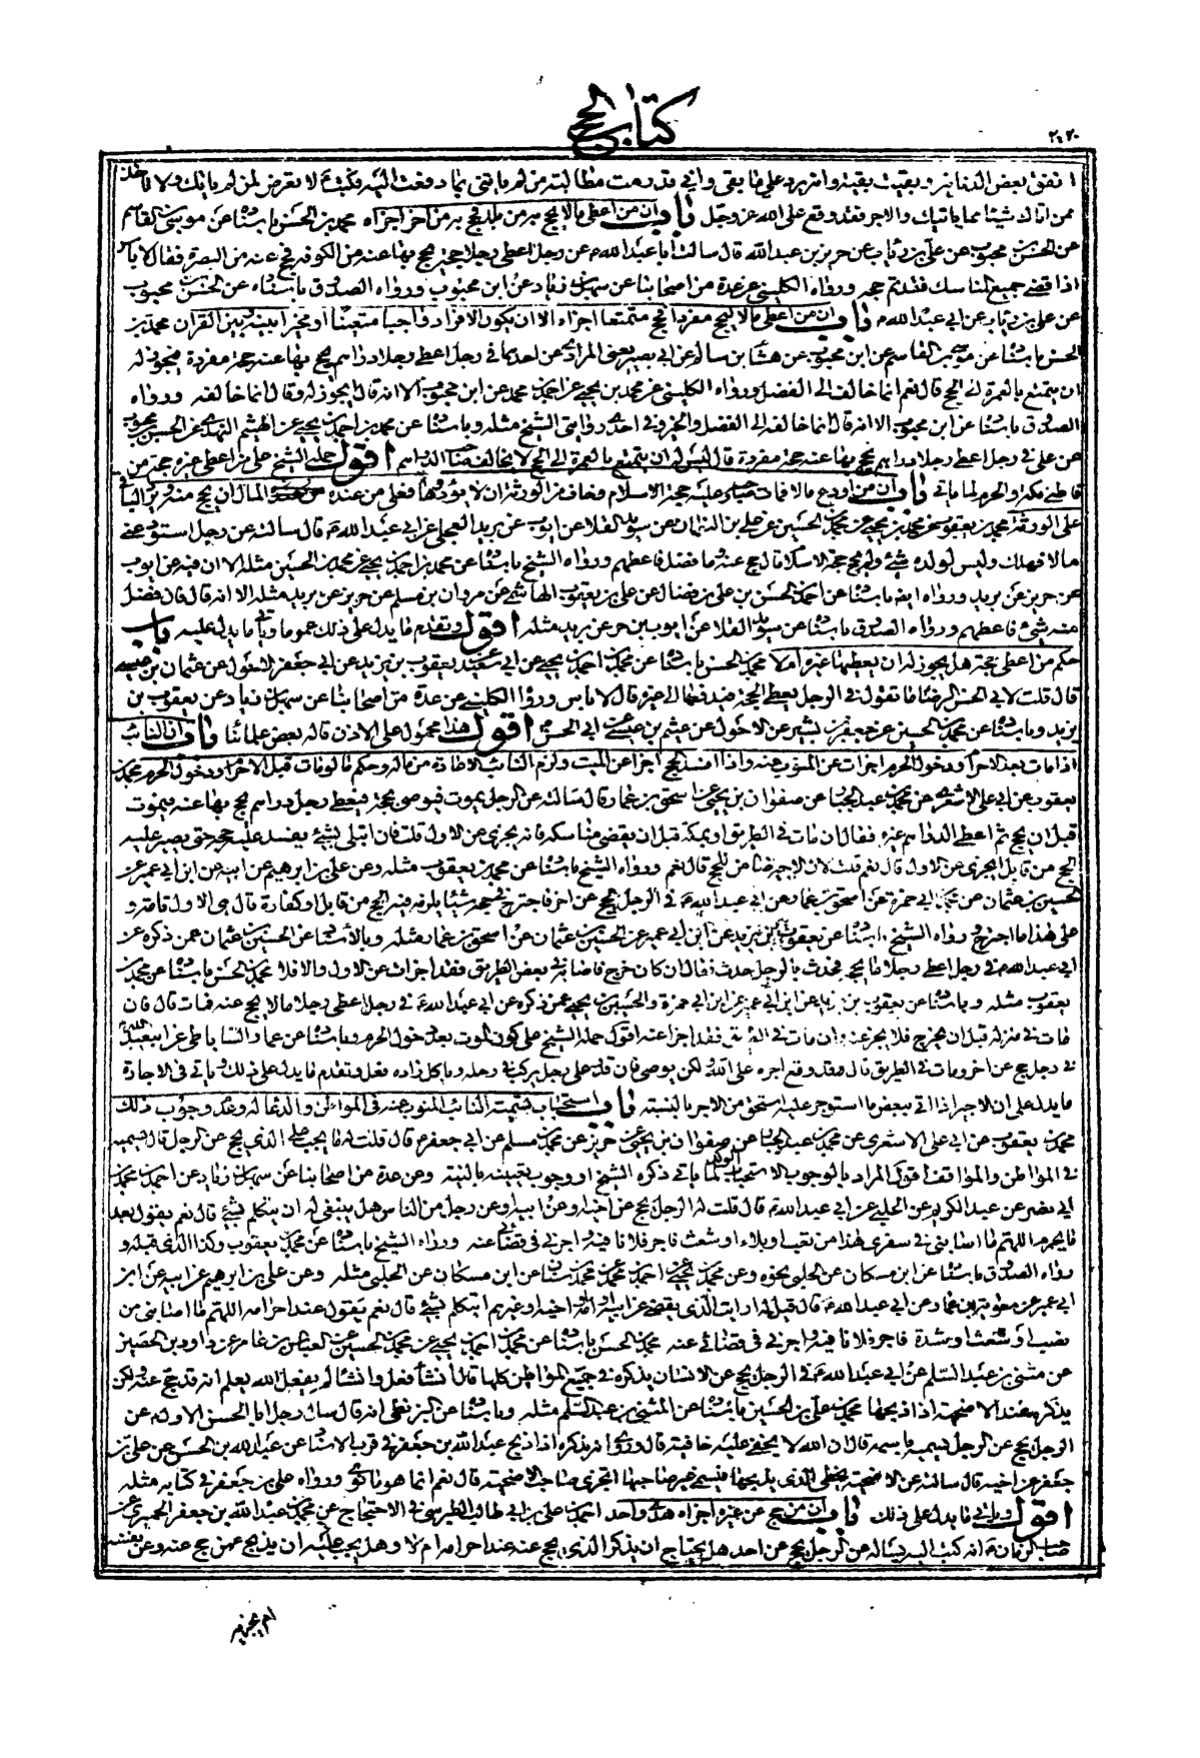 كتاب الحج
انفق بعض الدنانير وبقيت بقية وانه يرد علي ما بقي واني قد رمت مطالبة من لم ياتني بما دفعت اليه فكتب ع لا تعرض لمن لم ياتك ولا تاخذ
ممن اتاك شيئا مما ياتيك والاجر فقد وقع على الله عز وجل باب ان من اعطى مالا يحج به من بلد فحج به من اخر اجزاه محمد بن الحسن باسناده عن موسى بن القاسم
عن الحسن بن محبوب عن علي بن رئاب عن حريز بن عبد الله قال سالت ابا عبد الله ع عن رجل اعطى رجلا حجة يحج بها عنه من الكوفة فحج عنه من البصرة فقال لا باس
اذا قضى جميع المناسك فقد تم حجه ورواه الكليني عن عدة من اصحابنا عن سهل بن زياد عن ابن محبوب ورواه الصدوق باسناده عن الحسن بن محبوب
عن علي بن رئاب عن ابي عبد الله ع باب ان من اعطى مالا ليحج مفردا فحج متمتعا اجزاه الا ان يكون الافراد واجبا متعينا او مخيرا بينه وبين القران محمد بن
الحسن باسناده عن موسى بن القاسم عن ابن محبوب عن هشام بن سالم عن ابي بصير يعني المرادي عن احدهما في رجل اعطى رجلا دراهم يحج بها عنه حجة مفردة فيجوز له
ان يتمتع بالعمرة الى الحج قال نعم انما خالف الى الفضل ورواه الكليني عن محمد بن يحيى عن احمد بن محمد عن ابن محبوب الا انه قال ايجوز له وقال انما خالفه ورواه
الصدوق باسناده عن ابن محبوب الا انه قال انما خالفه الى الفضل والخير وفي احدى روايتي الشيخ مثله وباسناده عن محمد بن احمد بن يحيى عن الهيثم النهدي عن الحسن بن محبوب
عن علي في رجل اعطى رجلا دراهم يحج بها عنه حجة مفردة قال ليس له ان يتمتع بالعمرة الى الحج لا يخالف صاحب الدراهم اقول حمله الشيخ على من اعطى غيره حجة من
قاطني مكة والحرم لما ياتي باب ان من اودع مالا فمات صاحبه وعليه حجة الاسلام وخاف من الورثة ان لا يؤدوها فعلى من عنده المال ان يحج منه ويرد الباقي
على الورثة محمد بن يعقوب عن محمد بن يحيى عن محمد بن الحسين عن علي بن النعمان عن سويد القلا عن ايوب عن بريد العجلي عن ابي عبد الله ع قال سالته عن رجل استودعني
مالا فهلك وليس لولده شيء ولم يحج حجة الاسلام قال حج عنه وما فضل فاعطهم ورواه الشيخ باسناده عن محمد بن احمد بن يحيى عن محمد بن الحسين مثله الا ان فيه عن ايوب
عن حريز عن بريد ورواه ايضا باسناده عن احمد بن الحسن بن علي بن فضال عن علي بن يعقوب الهاشمي عن مروان بن مسلم عن حريز عن بريد مثله الا انه قال قال فضل
منه شيء فاعطهم ورواه الصدوق باسناده عن سويد القلا عن ايوب بن حر عن بريد مثله اقول وتقدم ما يدل على ذلك عموما وياتي ما يدل عليه باب
حكم من اعطى حجة هل يجوز له ان يعطيها غيره ام لا محمد بن الحسن باسناده عن محمد بن احمد بن يحيى عن ابي سعيد عن يعقوب بن يزيد عن ابي جعفر الاحول عن عثمان بن عيسى
قال قلت لابي الحسن الرضا ع ما تقول في الرجل يعطى الحجة فيدفعها الى غيره قال لا باس ورواه الكليني عن عدة من اصحابنا عن سهل بن زياد عن يعقوب بن
يزيد وباسناده عن محمد بن الحسين عن جعفر بن بشير عن الاحول عن عثمان بن عيسى عن ابي الحسن ع اقول هذا محمول على الاذن قاله بعض علمائنا باب ان النائب
اذا مات بعد الاحرام ودخول الحرم اجزات عن المنوب عنه واذا افسد الحج اجزا عن الميت ولزم النائب الاعادة من ماله وحكم ما لو مات قبل الاحرام ودخول الحرم محمد بن
يعقوب عن ابي علي الاشعري عن محمد بن عبد الجبار عن صفوان بن يحيى عن اسحق بن عمار قال سالته عن الرجل يموت فيوصي بحجة فيعطى رجل دراهم يحج بها عنه فيموت
قبل ان يحج ثم اعطى الدراهم غيره فقال ان مات في الطريق او بمكة قبل ان يقضي مناسكه فانه يجزي عن الاول قلت فان ابتلى بشيء يفسد عليه حجه حتى يصير عليه
الحج من قابل ايجزي عن الاول قال نعم قلت لان الاجير ضامن للحج قال نعم ورواه الشيخ باسناده عن محمد بن يعقوب مثله وعن علي بن ابراهيم عن ابيه عن ابن ابي عمير عن
الحسين بن عثمان عن محمد بن ابي حمزة عن اسحق بن عمار عن ابي عبد الله ع في الرجل يحج عن اخر فاجترح في حجه شيئا يلزمه فيه الحج من قابل او كفارة قال هي الاول تامة و
على هذا ما اجترح ورواه الشيخ باسناده عن يعقوب بن يزيد عن ابن ابي عمير عن الحسين بن عثمان عن اسحق بن عمار مثله وبالاسناد عن الحسين بن عثمان عمن ذكره عن
ابي عبد الله ع في رجل اعطى رجلا ما يحجه فحدث بالرجل حدث فقال ان كان خرج فاصابه في بعض الطريق فقد اجزات عن الاول والا فلا محمد بن الحسن باسناده عن محمد بن
يعقوب مثله وباسناده عن يعقوب بن يزيد عن ابن ابي عمير عن ابن ابي حمزة والحسين بن يحيى عمن ذكره عن ابي عبد الله ع في رجل اعطى رجلا مالا يحج عنه فمات قال فان
مات في منزله قبل ان يخرج فلا يجزي عنه وان مات في الطريق فقد اجزا عنه اقول حمله الشيخ على كون الموت بعد دخول الحرم وباسناده عن عمار الساباطي عن ابي عبد الله ع
في رجل حج عن اخر ومات في الطريق قال فقد وقع اجره على الله لكن يوصي فان قدر على رجل يركب في رحله وياكل زاده فعل وتقدم ما يدل على ذلك وياتي في الاجارة
ما يدل على ان الاجير اذا اتى ببعض ما استوجر عليه استحق من الاجر بالنسبة باب استحباب تسمية النائب المنوب عنه في المواطن والدعا له وعدم وجوب ذلك
محمد بن يعقوب عن ابي علي الاشعري عن محمد بن عبد الجبار عن صفوان بن يحيى عن حريز عن محمد بن مسلم عن ابي جعفر ع قال قلت له ما يجب على الذي يحج عن الرجل قال يسميه
في المواطن والمواقف اقول المراد بالوجوب الاستحباب الموكد لما ياتي ذكره الشيخ او وجوب تعيينه بالنية وعن عدة من اصحابنا عن سهل بن زياد عن احمد بن محمد بن
ابي نصر عن عبد الكريم عن الحلبي عن ابي عبد الله ع قال قلت له الرجل يحج عن اخيه او عن ابيه او عن رجل من الناس هل ينبغي له ان يتكلم بشيء قال نعم يقول بعد
ما يحرم اللهم ما اصابني في سفري هذا من تعب او بلاء او شعث فاجر فلانا فيه واجرني في قضائي عنه ورواه الشيخ باسناده عن محمد بن يعقوب وكذا الذي قبله و
رواه الصدوق باسناده عن ابن مسكان عن الحلبي نحوه وعن محمد بن يحيى عن احمد بن محمد عن محمد بن سنان عن ابن مسكان عن الحلبي مثله وعن علي بن ابراهيم عن ابيه عن ابن
ابي عمير عن معوية بن عمار عن ابي عبد الله ع قال قيل له ارايت الذي يقضي عن ابيه او امه او اخيه او غيرهم ايتكلم بشيء قال نعم يقول عند احرامه اللهم ما اصابني من
نصب او شعث او شدة فاجر فلانا فيه واجرني في قضائي عنه محمد بن الحسن باسناده عن محمد بن احمد بن يحيى عن محمد بن الحسين عن العباس بن عامر عن داود بن الحصين
عن مثنى بن عبد السلام عن ابي عبد الله ع في الرجل يحج عن الانسان يذكره في جميع المواطن كلها قال ان شاء فعل وان شاء لم يفعل الله يعلم انه قد حج عنه ولكن
يذكره عند الاضحية اذا ذبحها محمد بن علي بن الحسين باسناده عن المثنى بن عبد السلام مثله وباسناده عن البزنطي انه قال سال رجل ابا الحسن الاول ع عن
الرجل يحج عن الرجل يسميه باسمه قال ان الله لا يخفى عليه خافية قال وروي انه يذكره اذا ذبح عبد الله بن جعفر في قرب الاسناد عن عبد الله بن الحسن عن علي بن
جعفر عن اخيه قال سالته عن الاضحية يخطي الذي يذبحها فيسمي غير صاحبها اتجزي صاحب الاضحية قال نعم انما هو ما نوى ورواه علي بن جعفر في كتابه مثله
اقول وياتي ما يدل على ذلك باب ان من حج عن غيره اجزاه هدى واحد احمد بن علي بن ابي طالب الطبرسي في الاحتجاج عن محمد بن عبد الله بن جعفر الحميري عن
صاحب الزمان ع انه كتب اليه يساله عن الرجل يحج عن احد هل يحتاج ان يذكر الذي يحج عنه عند احرامه ام لا وهل يجب عليه ان يذبح عمن حج عنه وعن نفسه
ام يجزيه